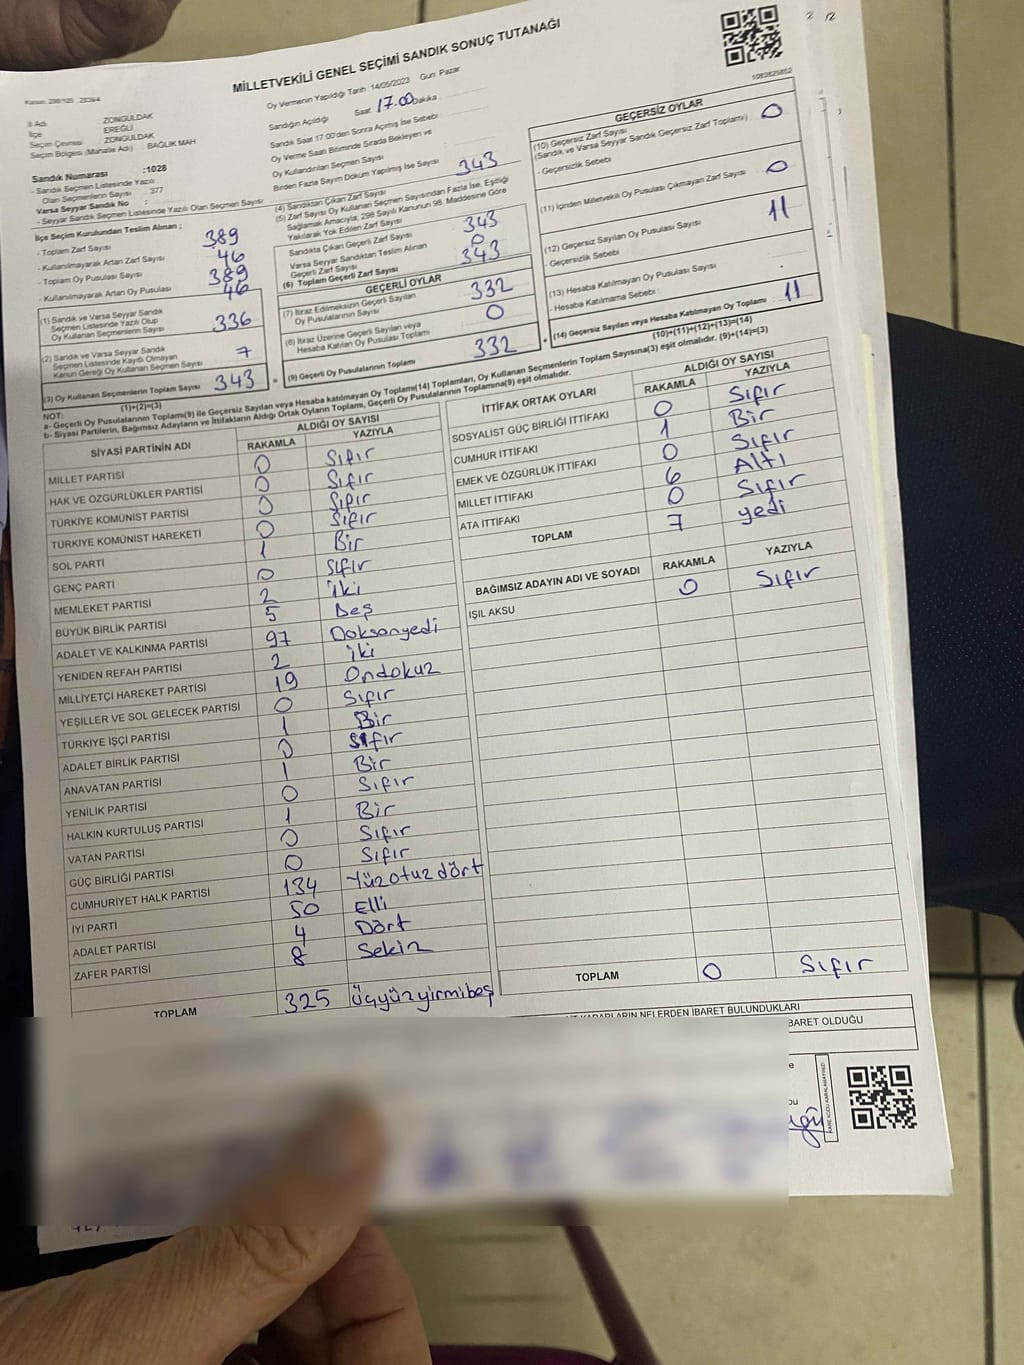 2 /2
MİLLETVEKİLİ GENEL SEÇİMİ SANDIK SONUÇ TUTANAĞI
1083825852
İl Adı : ZONGULDAK
İlçe : EREĞLİ
Seçim Çevresi : ZONGULDAK
Seçim Bölgesi (Mahalle Adı) : BAĞLIK MAH.
Sandık Numarası :1028
- Sandık Seçmen Listesinde Yazılı
Olan Seçmenlerin Sayısı : 377
Varsa Seyyar Sandık No :
- Seyyar Sandık Seçmen Listesinde Yazılı Olan Seçmen Sayısı
İlçe Seçim Kurulundan Teslim Alınan ;
- Toplam Zarf Sayısı 389
- Kullanılmayarak Artan Zarf Sayısı 46
- Toplam Oy Pusulası Sayısı 389
- Kullanılmayarak Artan Oy Pusulası 46
(1) Sandık ve Varsa Seyyar Sandık
Seçmen Listesinde Yazılı Olup
Oy Kullanan Seçmenlerin Sayısı 336
(2) Sandık ve Varsa Seyyar Sandık
Seçmen Listesinde Kayıtlı Olmayan
Kanun Gereği Oy Kullanan Seçmen Sayısı 7
(3) Oy Kullanan Seçmenlerin Toplam Sayısı 343
(1)+(2)=(3)
Oy Vermenin Yapıldığı Tarih : 14/05/2023 Gün: Pazar
Sandığın Açıldığı Saat: 17.00 Dakika :
Sandık Saat 17:00'den Sonra Açılmış İse Sebebi
Oy Verme Saati Bitiminde Sırada Bekleyen ve
Oy Kullandırılan Seçmen Sayısı
Birden Fazla Sayım Döküm Yapılmış İse Sayısı
(4) Sandıktan Çıkan Zarf Sayısı 343
(5) Zarf Sayısı Oy Kullanan Seçmen Sayısından Fazla İse, Eşitliği
Sağlamak Amacıyla; 298 Sayılı Kanunun 98. Maddesine Göre
Yakılarak Yok Edilen Zarf Sayısı
Sandıkta Çıkan Geçerli Zarf Sayısı 343
Varsa Seyyar Sandıktan Teslim Alınan
Geçerli Zarf Sayısı 0
(6) Toplam Geçerli Zarf Sayısı 343
GEÇERLİ OYLAR
(7) İtiraz Edilmeksizin Geçerli Sayılan
Oy Pusulalarının Sayısı 332
(8) İtiraz Üzerine Geçerli Sayılan veya
Hesaba Katılan Oy Pusulası Toplamı 0
= (9) Geçerli Oy Pusulalarının Toplamı 332
GEÇERSİZ OYLAR
(10) Geçersiz Zarf Sayısı
(Sandık ve Varsa Seyyar Sandık Geçersiz Zarf Toplamı) : 0
- Geçersizlik Sebebi
(11) İçinden Milletvekili Oy Pusulası Çıkmayan Zarf Sayısı 0
(12) Geçersiz Sayılan Oy Pusulası Sayısı 11
- Geçersizlik Sebebi
(13) Hesaba Katılmayan Oy Pusulası Sayısı
- Hesaba Katılmama Sebebi :
+ (14) Geçersiz Sayılan veya Hesaba Katılmayan Oy Toplamı : 11
(10)+(11)+(12)+(13)=(14)
NOT:
a- Geçerli Oy Pusulalarının Toplamı(9) ile Geçersiz Sayılan veya Hesaba katılmayan Oy Toplamı(14) Toplamları, Oy Kullanan Seçmenlerin Toplam Sayısına(3) eşit olmalıdır. (9)+(14)=(3)
b- Siyasi Partilerin, Bağımsız Adayların ve İttifakların Aldığı Ortak Oyların Toplamı, Geçerli Oy Pusulalarının Toplamına(9) eşit olmalıdır.
SİYASİ PARTİNİN ADI ALDIĞI OY SAYISI
RAKAMLA YAZIYLA
MİLLET PARTİSİ 0 Sıfır
HAK VE ÖZGÜRLÜKLER PARTİSİ 0 Sıfır
TÜRKİYE KOMÜNİST PARTİSİ 0 Sıfır
TÜRKİYE KOMÜNİST HAREKETİ 0 Sıfır
SOL PARTİ 1 Bir
GENÇ PARTİ 0 Sıfır
MEMLEKET PARTİSİ 2 iki
BÜYÜK BİRLİK PARTİSİ 5 Beş
ADALET VE KALKINMA PARTİSİ 97 Doksanyedi
YENİDEN REFAH PARTİSİ 2 iki
MİLLİYETÇİ HAREKET PARTİSİ 19 Ondokuz
YEŞİLLER VE SOL GELECEK PARTİSİ 0 Sıfır
TÜRKİYE İŞÇİ PARTİSİ 1 Bir
ADALET BİRLİK PARTİSİ 0 Sıfır
ANAVATAN PARTİSİ 1 Bir
YENİLİK PARTİSİ 0 Sıfır
HALKIN KURTULUŞ PARTİSİ 1 Bir
VATAN PARTİSİ 0 Sıfır
GÜÇ BİRLİĞİ PARTİSİ 0 Sıfır
CUMHURİYET HALK PARTİSİ 134 Yüzotuzdört
İYİ PARTİ 50 Elli
ADALET PARTİSİ 4 Dört
ZAFER PARTİSİ 8 Sekiz
TOPLAM 325 Üçyüzyirmibeş
İTTİFAK ORTAK OYLARI ALDIĞI OY SAYISI
RAKAMLA YAZIYLA
SOSYALİST GÜÇ BİRLİĞİ İTTİFAKI 0 Sıfır
CUMHUR İTTİFAKI 1 Bir
EMEK VE ÖZGÜRLÜK İTTİFAKI 0 Sıfır
MİLLET İTTİFAKI 6 Altı
ATA İTTİFAKI 0 Sıfır
TOPLAM 7 yedi
BAĞIMSIZ ADAYIN ADI VE SOYADI RAKAMLA YAZIYLA
IŞIL AKSU 0 Sıfır
TOPLAM 0 Sıfır
NELERDEN İBARET BULUNDUKLARI
BARET OLDUĞU